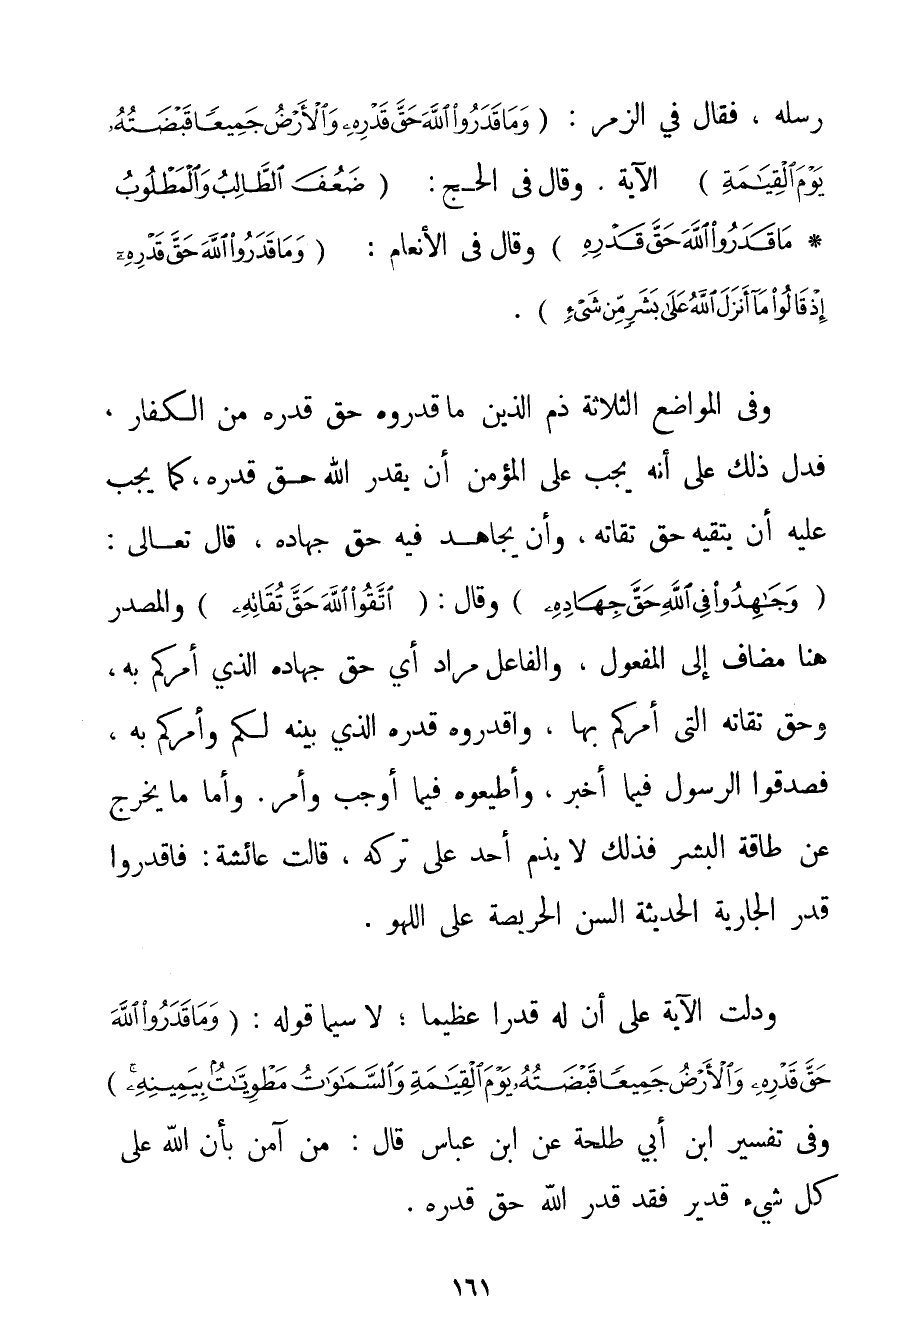 رسله ، فقال في الزمر : ( وَمَا قَدَرُوا۟ ٱللَّهَ حَقَّ قَدْرِهِۦ وَٱلْأَرْضُ جَمِيعًا قَبْضَتُهُۥ
يَوْمَ ٱلْقِيَٰمَةِ ) الآية . وقال فى الحج : ( ضَعُفَ ٱلطَّالِبُ وَٱلْمَطْلُوبُ
* مَا قَدَرُوا۟ ٱللَّهَ حَقَّ قَدْرِهِ ) وقال فى الأنعام : ( وَمَا قَدَرُوا۟ ٱللَّهَ حَقَّ قَدْرِهِۦٓ
إِذْ قَالُوا۟ مَآ أَنزَلَ ٱللَّهُ عَلَىٰ بَشَرٍ مِّن شَىْءٍ ) .
وفى المواضع الثلاثة ذم الذين ما قدروه حق قدره من الكفار ،
فدل ذلك على أنه يجب على المؤمن أن يقدر الله حق قدره ، كما يجب
عليه أن يتقيه حق تقاته ، وأن يجاهد فيه حق جهاده ، قال تعالى :
( وَجَٰهِدُوا۟ فِى ٱللَّهِ حَقَّ جِهَادِهِۦ ) وقال : ( ٱتَّقُوا۟ ٱللَّهَ حَقَّ تُقَاتِهِۦ ) والمصدر
هنا مضاف إلى المفعول ، والفاعل مراد أي حق جهاده الذي أمركم به ،
وحق تقاته التى أمركم بها ، واقدروه قدره الذي بينه لكم وأمركم به ،
فصدقوا الرسول فيما أخبر ، وأطيعوه فيما أوجب وأمر . وأما ما يخرج
عن طاقة البشر فذلك لا يذم أحد على تركه ، قالت عائشة : فاقدروا
قدر الجارية الحديثة السن الحريصة على اللهو .
ودلت الآية على أن له قدرا عظيما ؛ لا سيما قوله : ( وَمَا قَدَرُوا۟ ٱللَّهَ
حَقَّ قَدْرِهِۦ وَٱلْأَرْضُ جَمِيعًا قَبْضَتُهُۥ يَوْمَ ٱلْقِيَٰمَةِ وَٱلسَّمَٰوَٰتُ مَطْوِيَّٰتٌۢ بِيَمِينِهِۦ ۚ )
وفى تفسير ابن أبي طلحة عن ابن عباس قال : من آمن بأن الله على
كل شيء قدير فقد قدر الله حق قدره .
١٦١